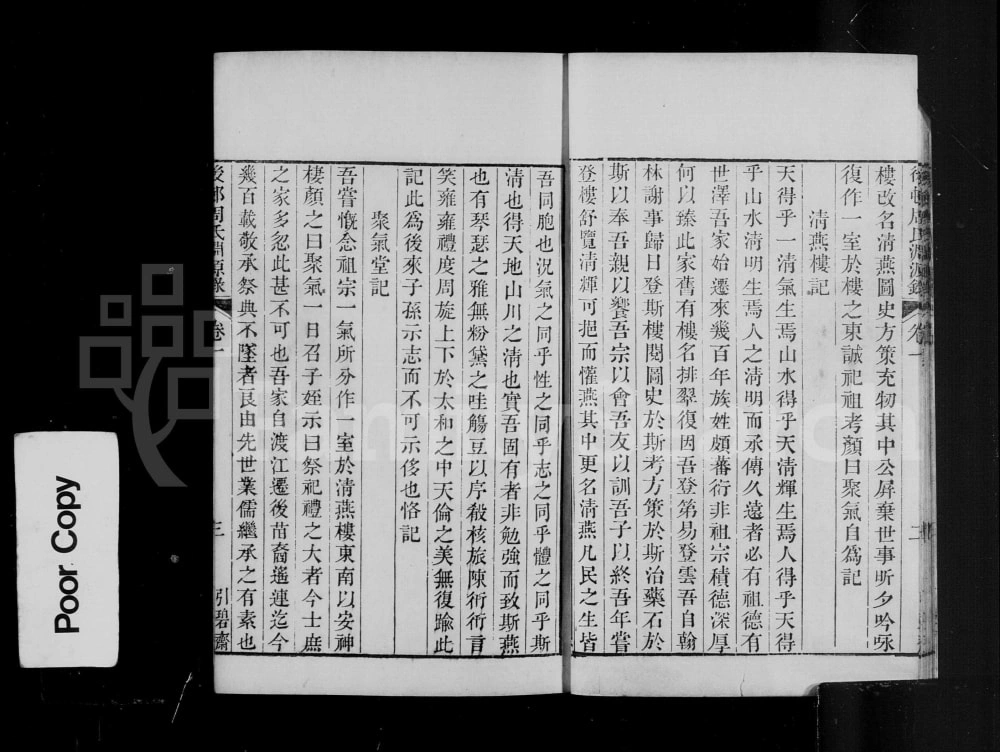 樓改名清燕圖史方策充牣其中公屏棄世事昕夕吟咏
復作一室於樓之東誠祀祖考顏曰聚氣自為記
清燕樓記
天得乎一清氣生焉山水得乎天清輝生焉人得乎天得
乎山水清明生焉人之清明而承傳久遠者必有祖德有
世澤吾家始遷來幾百年族姓頗蕃衍非祖宗積德深厚
何以臻此家舊有樓名排翠復因吾登第易登雲吾自翰
林謝事歸日登斯樓閱圖史於斯考方策於斯治藥石於
斯以奉吾親以饗吾宗以會吾友以訓吾子以終吾年嘗
登樓舒覽清輝可挹而懽燕其中更名清燕凡民之生皆
二
吾同胞也況氣之同乎性之同乎志之同乎體之同乎斯
清也得天地山川之清也實吾固有者非勉強而致斯燕
也有琴瑟之雅無粉黛之哇觴豆以序殽核旅陳衎衎言
笑雍雍禮度周旋上下於太和之中天倫之美無復踰此
記此為後來子孫示志而不可示侈也恪記
聚氣堂記
吾嘗慨念祖宗一氣所分作一室於清燕樓東南以安神
棲顏之曰聚氣一日召子姪示曰祭祀禮之大者今士庶
之家多忽此甚不可也吾家自渡江遷後苗裔遙連迄今
幾百載敬承祭典不墜者良由先世業儒繼承之有素也
後邨周氏淵源錄
卷一
三
引碧齋
Poor Copy